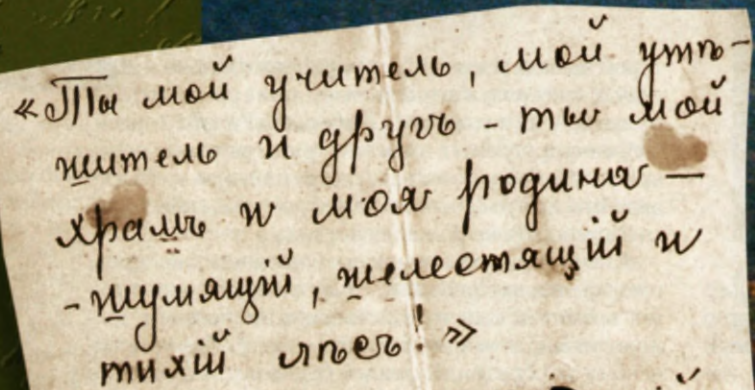 «Ты мой учитель, мой утѣ-
шитель и другъ - ты мой
храмъ и моя родина —
- шумящій, шелестящій и
тихій лѣсъ! »